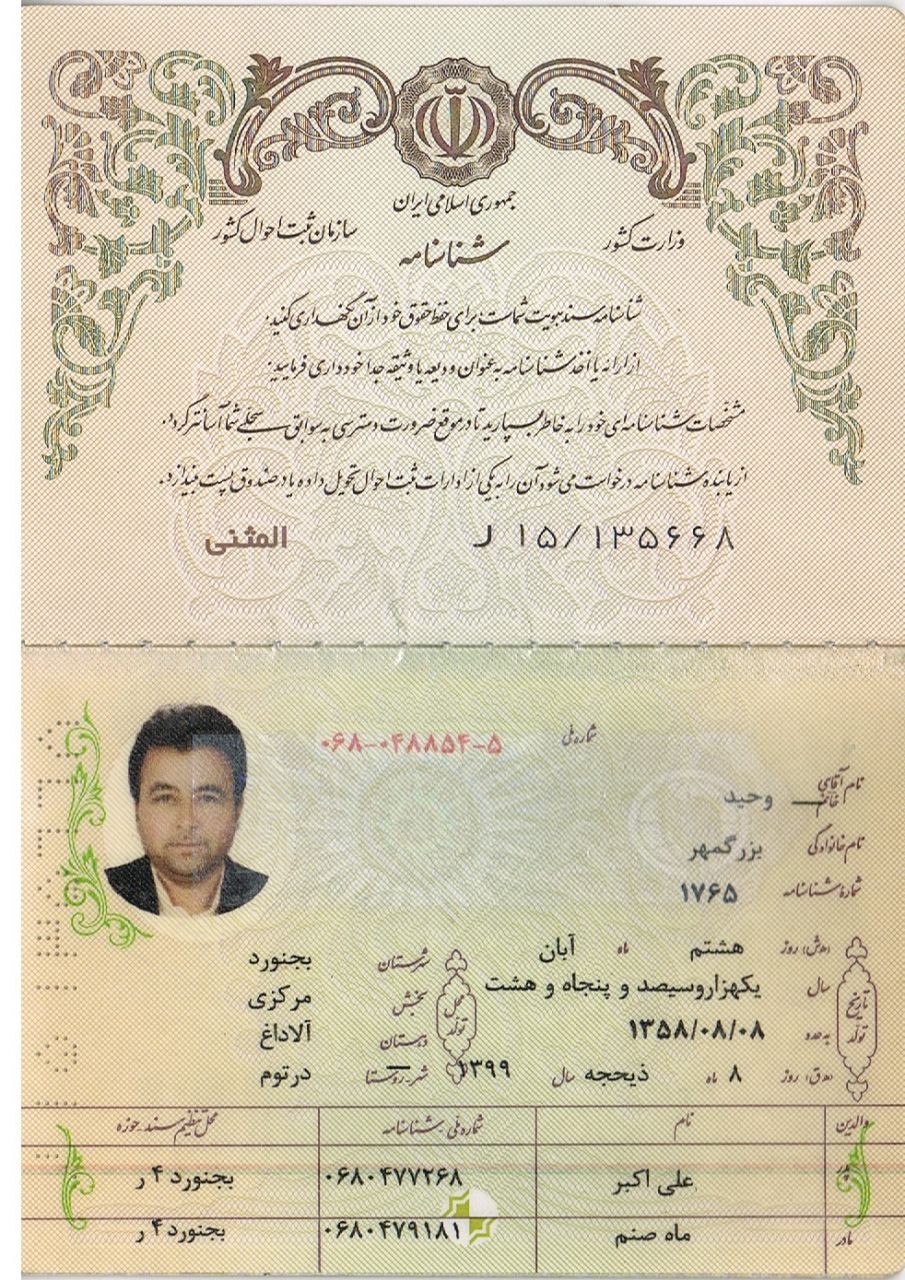 جمهوری اسلامی ایران
وزارت کشور
سازمان ثبت احوال کشور
شناسنامه
شناسنامه سند هویت شماست برای حفظ حقوق خود از آن نگهداری کنید.
از ارائه یا اخذ شناسنامه به عنوان ودیعه یا وثیقه جدا خودداری فرمایید.
مشخصات شناسنامه‌ای خود را به خاطر بسپارید تا در موقع ضرورت دسترسی به سوابق سجلی شما آسانتر گردد.
از یابنده شناسنامه درخواست می شود آن را به یکی از ادارات ثبت احوال تحویل داده یا در صندوق پست بیندازد.
۱۵/۱۳۵۶۶۸ ر
المثنی
شماره ملی ۰۶۸-۰۴۸۸۵۴-۵
نام آقای خانم وحید
نام خانوادگی بزرگمهر
شماره شناسنامه ۱۷۶۵
تاریخ تولد
(ه‍.ش) روز هشتم ماه آبان
سال یکهزاروسیصد و پنجاه و هشت
به عدد ۱۳۵۸/۰۸/۰۸
(ه‍.ق) روز ۸ ماه ذیحجه سال ۱۳۹۹
محل تولد
شهرستان بجنورد
بخش مرکزی
دهستان آلاداغ
شهر-روستا درتوم
والدین نام شماره ملی شناسنامه محل تنظیم سند حوزه
پدر علی اکبر ۰۶۸۰۴۷۷۲۶۸ بجنورد ۴ ر
مادر ماه صنم ۰۶۸۰۴۷۹۱۸۱ بجنورد ۴ ر